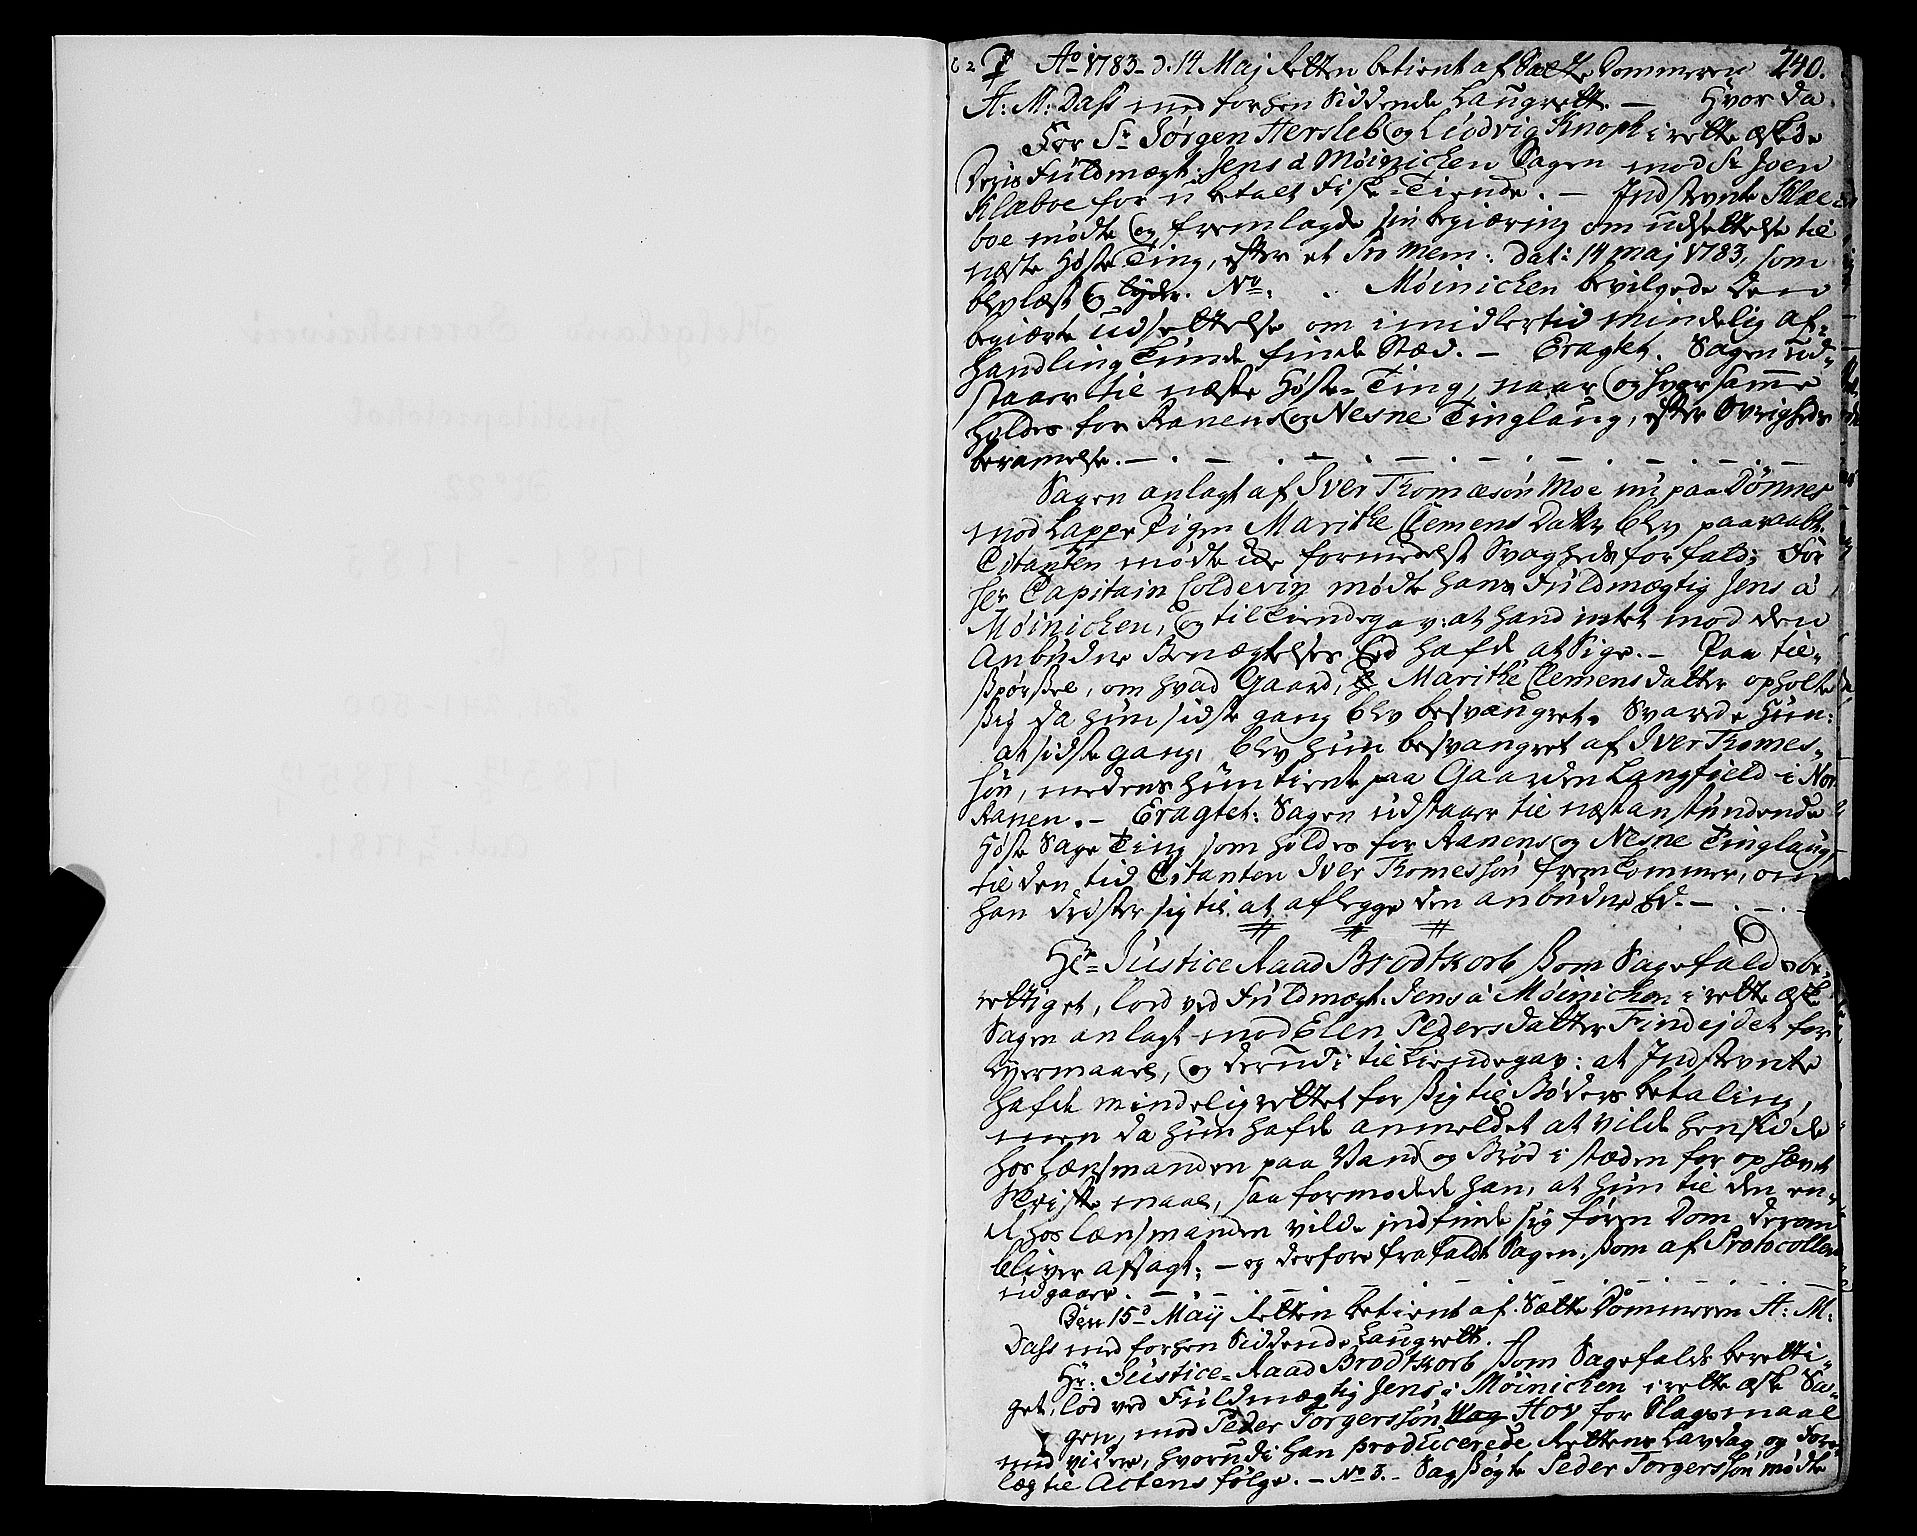 Ao 1783 d. 14 Maj Retten betient af Sætte Dommeren 240.
A: M: Dass med forhen Siddende Laugrett. — Hvor da
For Sr Jørgen Hersleb og Liudvig Knoph i rette æskede
Deris Fuldmægt: Jens á Møinichen Sagen mod Sr Joen
Klæboe for u betalt Fiske-Tiende. — Indstevnte Klæ-
boe mødte og fremlagde sin begiæring om udsettelse til
næste Høste Ting, efter et Pro Mem: dat: 14 maj 1783, som
blev læst og lyder. No. Møinichen bevilgede den
begiærte udsettelse om imidlertid mindelig af-
handling kunde finde Stæd. — Eragtet. Sagen ud-
staaer til næste Høste-Ting, naar og hvor samme
holdes for Ranens og Nesne Tinglaug, efter Øvrigheds
beramelse. —
Sagen anlagt af Iver Thomæsøn Moe nu paa Dønnes
mod Lappe Pigen Marithe Clemens Datter blev paaraabt.
Citanten mødte icke formedelst Svagheds forfald; For
Her Capitain Coldevin mødte hans Fuldmægtig Jens á
Møinichen, og tilkiendegav: at hand intet mod den
Anbudne Benægtelses Eed hafde at Sige. — Paa til-
spørsel, om hvad Gaard, Marithe Clemensdatter opholte
sig da hun sidste gang blev besvangret. Svarede Hun:
at sidste gang, blev hun besvangret af Iver Thomes-
søn, medens hun tiente paa Gaarden Langfield i Nor
Ranen. — Eragtet: Sagen udstaaer til næstanstundende
Høste Sage Ting som holdes for Ranens og Nesne Tinglaug,
til den tid Citanten Iver Thomessøn fremkommer, om
han drister sig til at aflegge den anbudne Ed. —
Hr Justice Raad Brodtkorb som Sagefalds be-
rettiget, lod ved Fuldmægt. Jens á Møinichen i rette æske
Sagen anlagt mod Elen Pedersdatter Findejdet for
Lejermaal, og derudi tilkiendegav: at Indstevnte
hafde mindelig rettet for sig til Bøders betaling,
men da hun hafde anmeldet at vilde hensidde
hos Lænsmanden paa Vand og Brød i stæden for ophævet
Skriftemaal, saa formodede han, at hun til den en-
d hos Lænsmanden vilde indfinde sig føren Dom derom
bliver afsagt; — og derfore frafaldt Sagen, som af Protocollen
udgaaer. —
Den 15d May Retten betient af Sætte Dommeren A: M:
Dass med forhen Siddende Laugrett.
Hr: Justice-Raad Brodtkorb som Sagefalds beretti-
get, lod ved Fuldmægtig Jens á Møinichen i rette æske Sa-
gen, mod Peder Torgerssøn Hov for Slagsmaal
med videre, hvorudi han producerede Rettens Lavdag og Fore-
læg til Actens følge. — No 3. — Sagsøgte Peder Torgersøn mødte